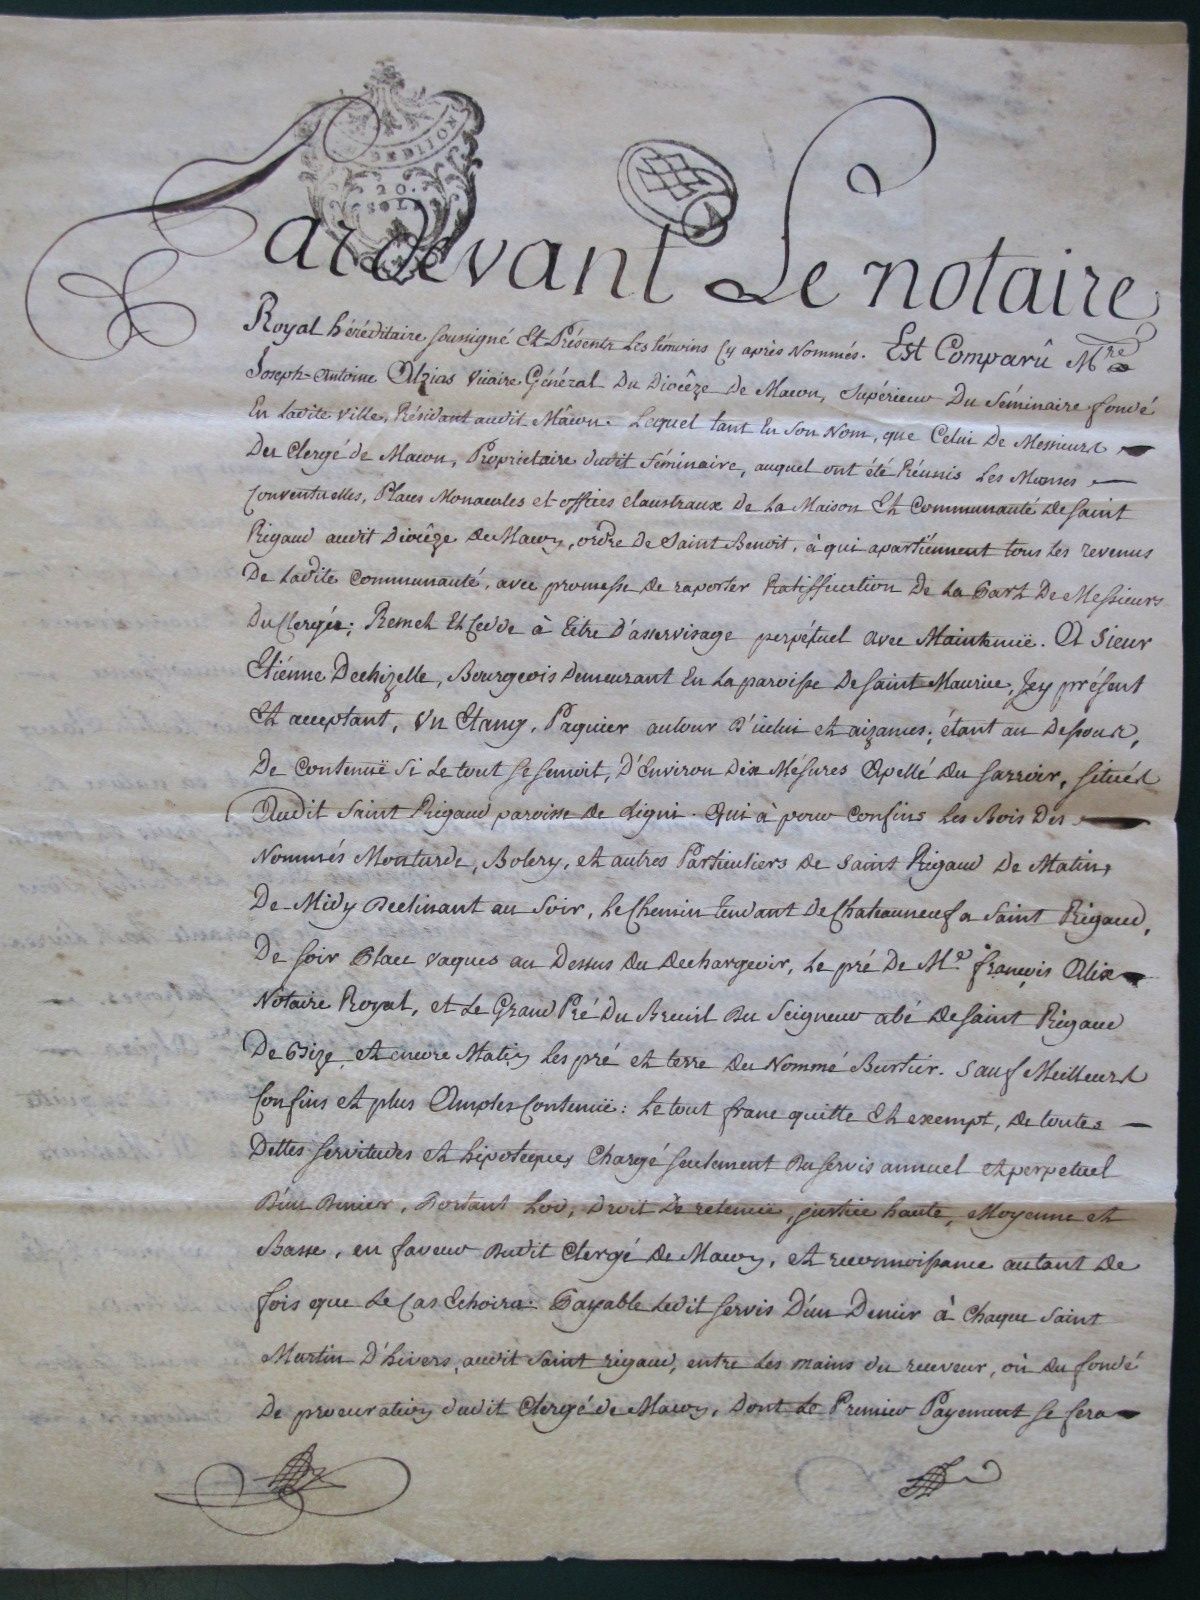 DE DIJON
20.
SOLS
Pardevant Le notaire
Royal héréditaire soussigné Et Présents Les témoins Cy après Nommés. Est Comparû Mre
Joseph-Antoine Alzias Vicaire Général Du Diocêze De Macon, Supérieur Du Séminaire fondé
En Ladite Ville, Résidant audit Mâcon. Lequel tant En Son Nom, que Celui De Messieurs
Du Clergé de Macon, Proprietaire dudit Séminaire, auquel ont été Réunis Les Manses
Conventuelles, Places Monacales et offices claustraux De La Maison Et Communauté de Saint
Rigaud audit Diocêze de Macon, ordre De Saint Benoit, à qui apartiennent tous Les revenus
De Ladite Communauté, avec promesse De raporter Ratiffication De La Part De Messieurs
Du Clergér; Remet Et Cedde à Titre D'asservisage perpétuel avec Maintenüe. A Sieur
Etiénne Dechizelle, Bourgeois Demeurant En La paroisse De Saint Maurice, Icy présent
Et acceptant, Un Etang, Paquier autour D'icelui et aizances; étant au Dessous,
De Contenüe Si Le tout Se Semoit, D'Environ Dix Mésures Apellé Du Sarroir, Situés
Audit Saint Rigaud paroisse De Ligni. Qui à pour Confins Les Bois Des
Nommés Montarde, Bolery, et autres Particuliers De Saint Rigaud De Matin,
De Midy Declinant au Soir, Le Chemin Tendant De Chateauneuf a Saint Rigaud,
De Soir Place vaques au Dessus Du Dechargeoir, Le pré De Me. françois Alix
Notaire Royal, et Le Grand Pré Du Breuil Du Seigneur abé De Saint Rigaud
De Bize, et encore Matin Les pré et terre Du Nommé Burtier. Sauf Meilleurs
Confins et plus Amples Contenüe: Le tout franc quitte Et exempt, De toutes
Dettes Servitudes et hipoteques Chargé Seulement Du Servis annuel et perpetuel
D'un Denier, Portant Lod, Droit De retenüe, justice haute, Moyenne et
Basse, en faveur Dudit Clergé De Macon, et reconnoissance autant De
fois que Le Cas Echoira. Payable Ledit Servis D'un Denier à Chaque Saint
Martin D'hivers, audit Saint rigaud, entre Les mains du receveur, où Du fondé
De procuration dudit Clergé de Macon, Dont Le Premier Payement Se fera